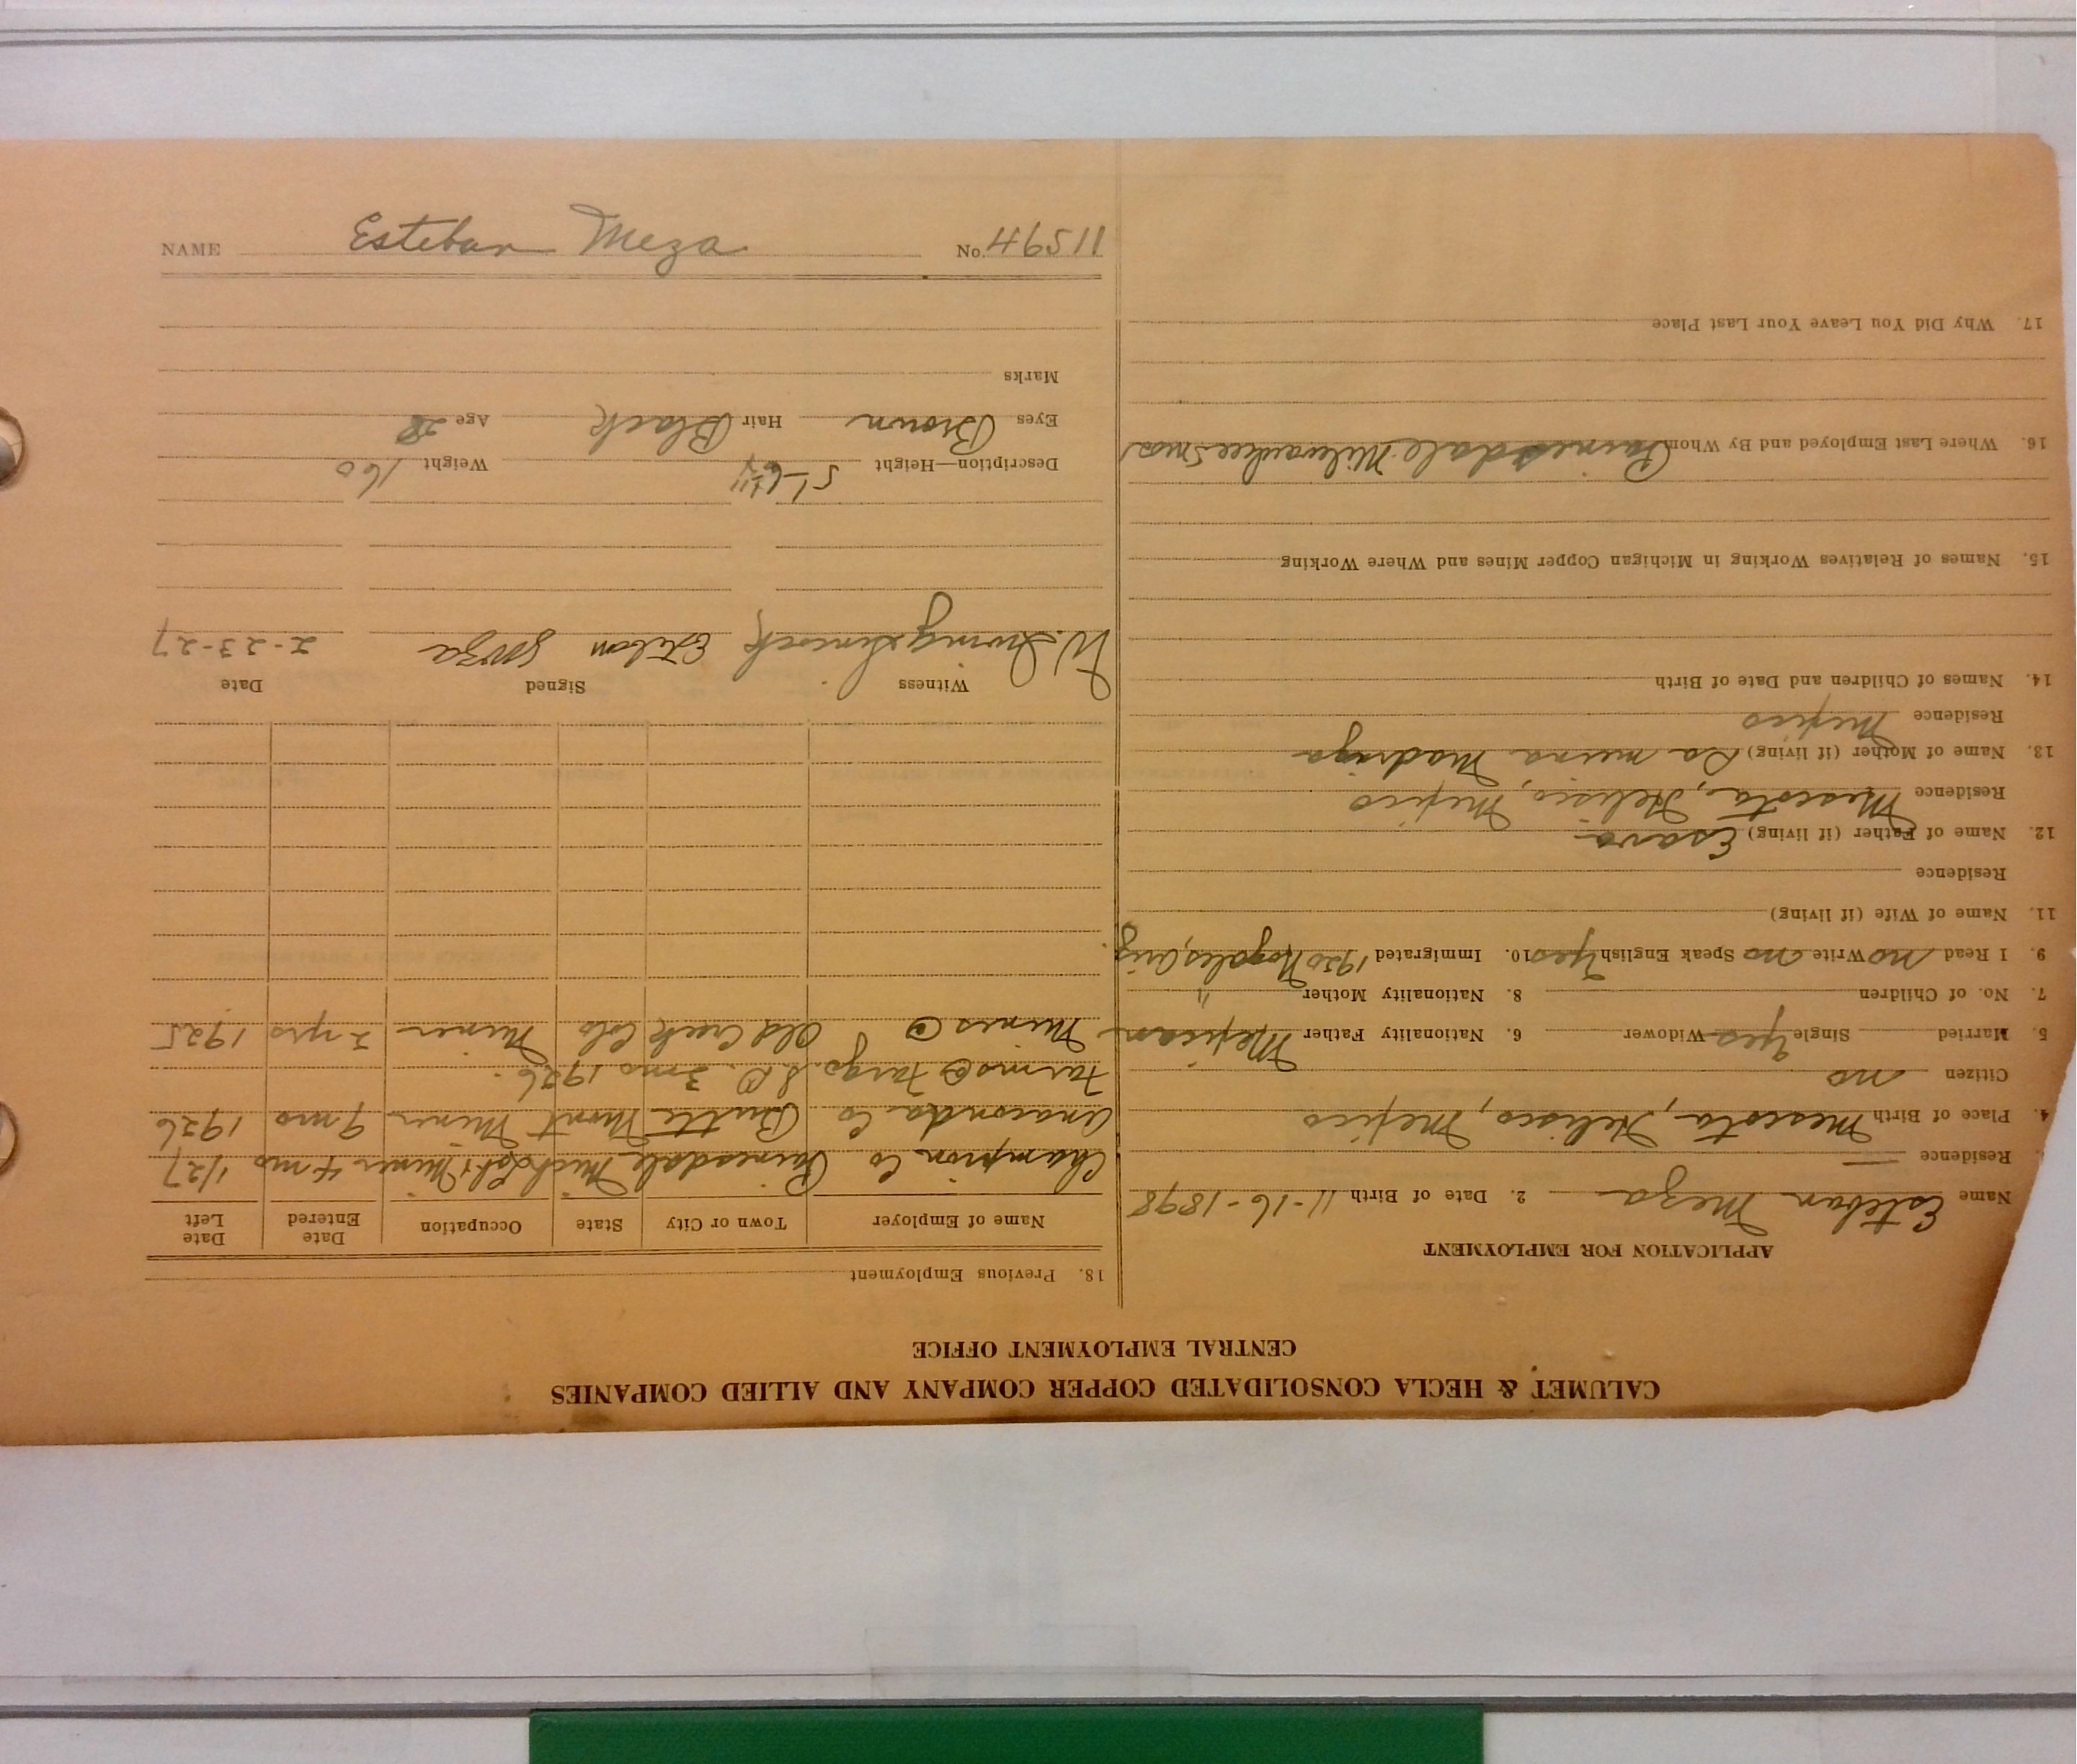 CALUMET & HECLA CONSOLIDATED COPPER COMPANY AND ALLIED COMPANIES
CENTRAL EMPLOYMENT OFFICE
APPLICATION FOR EMPLOYMENT
Name Esteban Meza 2. Date of Birth 11-16-1898
Residence
4. Place of Birth Mescota, Helisco, Mexico
Citizen no
5. Married Single Yes Widower 6. Nationality Father Mexican
7. No. of Children 8. Nationality Mother "
9. I Read no Write no Speak English Yes 10. Immigrated 1920 Nogales, Ariz
11. Name of Wife (if living)
Residence
12. Name of Father (if living)
Residence Mescota, Helisco, Mexico
13. Name of Mother (if living) Madriga
Residence Mexico
14. Names of Children and Date of Birth
15. Names of Relatives Working in Michigan Copper Mines and Where Working
16. Where Last Employed and By Whom Painesdale Milwaukee
17. Why Did You Leave Your Last Place
18. Previous Employment
Name of Employer Town or City State Occupation Date Entered Date Left
Champion Co Painesdale Mich Miner 4 mo 1/27
Anaconda Co Butte Mont Miner 9 mo 1926
Farms @ Fargo 3 mo 1926.
Mines @ Old Creek Colo Miner 2 yrs 1925
Witness Signed Date
W. Esteban 2-23-27
Description—Height 5'-6 Weight 160
Eyes Brown Hair Black Age 28
Marks
NAME Esteban Meza No. 11594